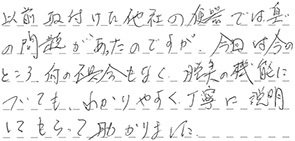 以前取付けた他社の食器では臭
の問題があったのですが、今回は今の
ところ何の不具合もなく、脱臭の機能に
ついても、わかりやすく丁寧に説明
してもらって助かりました。